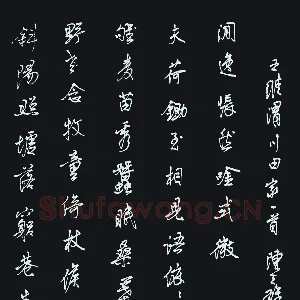 斜陽照墟落窮巷牛
野老念牧童倚杖候
雊麥苗秀蠶眠桑葉
夫荷鋤至相見語依
閒逸悵然吟式微
王維渭川田家一首 陳
Shufawang.CN